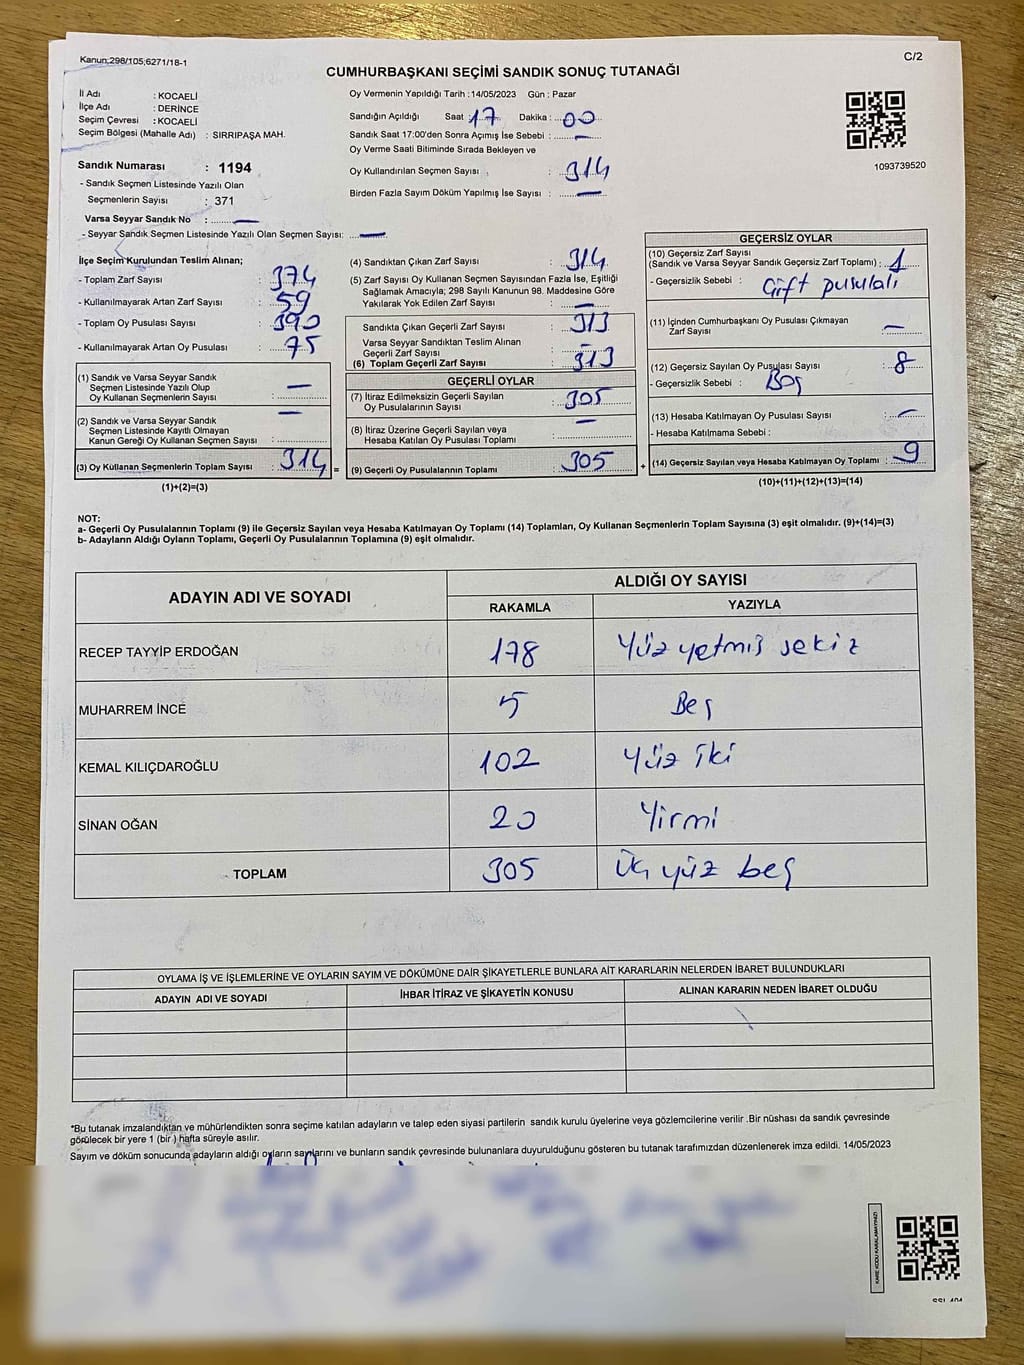 Kanun;298/105;6271/18-1
C/2
CUMHURBAŞKANI SEÇİMİ SANDIK SONUÇ TUTANAĞI
İl Adı : KOCAELİ
İlçe Adı : DERİNCE
Seçim Çevresi : KOCAELİ
Seçim Bölgesi (Mahalle Adı) : SIRRIPAŞA MAH.
Sandık Numarası : 1194
- Sandık Seçmen Listesinde Yazılı Olan
Seçmenlerin Sayısı : 371
Varsa Seyyar Sandık No : —
- Seyyar Sandık Seçmen Listesinde Yazılı Olan Seçmen Sayısı: —
Oy Vermenin Yapıldığı Tarih :14/05/2023 Gün : Pazar
Sandığın Açıldığı Saat : 17 Dakika : 00
Sandık Saat 17:00'den Sonra Açımış İse Sebebi : —
Oy Verme Saati Bitiminde Sırada Bekleyen ve
Oy Kullandırılan Seçmen Sayısı : 314
Birden Fazla Sayım Döküm Yapılmış İse Sayısı : —
1093739520
İlçe Seçim Kurulundan Teslim Alınan;
- Toplam Zarf Sayısı : 374
- Kullanılmayarak Artan Zarf Sayısı : 59
- Toplam Oy Pusulası Sayısı : 390
- Kullanılmayarak Artan Oy Pusulası : 75
(1) Sandık ve Varsa Seyyar Sandık
Seçmen Listesinde Yazılı Olup
Oy Kullanan Seçmenlerin Sayısı : —
(2) Sandık ve Varsa Seyyar Sandık
Seçmen Listesinde Kayıtlı Olmayan
Kanun Gereği Oy Kullanan Seçmen Sayısı : —
(3) Oy Kullanan Seçmenlerin Toplam Sayısı : 314 =
(1)+(2)=(3)
(4) Sandıktan Çıkan Zarf Sayısı : 314
(5) Zarf Sayısı Oy Kullanan Seçmen Sayısından Fazla İse, Eşitliği
Sağlamak Amacıyla; 298 Sayılı Kanunun 98. Maddesine Göre
Yakılarak Yok Edilen Zarf Sayısı : —
Sandıkta Çıkan Geçerli Zarf Sayısı : 313
Varsa Seyyar Sandıktan Teslim Alınan
Geçerli Zarf Sayısı : —
(6) Toplam Geçerli Zarf Sayısı : 313
GEÇERLİ OYLAR
(7) İtiraz Edilmeksizin Geçerli Sayılan
Oy Pusulalarının Sayısı : 305
(8) İtiraz Üzerine Geçerli Sayılan veya
Hesaba Katılan Oy Pusulası Toplamı : —
(9) Geçerli Oy Pusulalarının Toplamı : 305 +
GEÇERSİZ OYLAR
(10) Geçersiz Zarf Sayısı
(Sandık ve Varsa Seyyar Sandık Geçersiz Zarf Toplamı) : 1
- Geçersizlik Sebebi : Çift pusulalı
(11) İçinden Cumhurbaşkanı Oy Pusulası Çıkmayan
Zarf Sayısı : —
(12) Geçersiz Sayılan Oy Pusulası Sayısı : 8
- Geçersizlik Sebebi : Boş
(13) Hesaba Katılmayan Oy Pusulası Sayısı : —
- Hesaba Katılmama Sebebi :
(14) Geçersiz Sayılan veya Hesaba Katılmayan Oy Toplamı : 9
(10)+(11)+(12)+(13)=(14)
NOT:
a- Geçerli Oy Pusulalarının Toplamı (9) ile Geçersiz Sayılan veya Hesaba Katılmayan Oy Toplamı (14) Toplamları, Oy Kullanan Seçmenlerin Toplam Sayısına (3) eşit olmalıdır. (9)+(14)=(3)
b- Adayların Aldığı Oyların Toplamı, Geçerli Oy Pusulalarının Toplamına (9) eşit olmalıdır.
ADAYIN ADI VE SOYADI
ALDIĞI OY SAYISI
RAKAMLA YAZIYLA
RECEP TAYYİP ERDOĞAN 178 Yüz yetmiş sekiz
MUHARREM İNCE 5 Beş
KEMAL KILIÇDAROĞLU 102 Yüz iki
SİNAN OĞAN 20 Yirmi
TOPLAM 305 Üç yüz beş
OYLAMA İŞ VE İŞLEMLERİNE VE OYLARIN SAYIM VE DÖKÜMÜNE DAİR ŞİKAYETLERLE BUNLARA AİT KARARLARIN NELERDEN İBARET BULUNDUKLARI
ADAYIN ADI VE SOYADI İHBAR İTİRAZ VE ŞİKAYETİN KONUSU ALINAN KARARIN NEDEN İBARET OLDUĞU
*Bu tutanak imzalandıktan ve mühürlendikten sonra seçime katılan adayların ve talep eden siyasi partilerin sandık kurulu üyelerine veya gözlemcilerine verilir .Bir nüshası da sandık çevresinde
görülecek bir yere 1 (bir ) hafta süreyle asılır.
Sayım ve döküm sonucunda adayların aldığı oyların sayılarını ve bunların sandık çevresinde bulunanlara duyurulduğunu gösteren bu tutanak tarafımızdan düzenlenerek imza edildi. 14/05/2023
KARE KODU KARALAMAYINIZ!